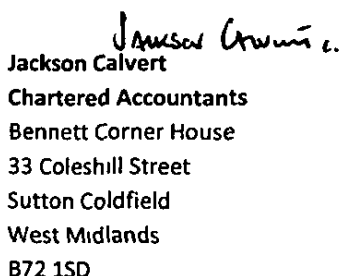 Jackson Calvert
Jackson Calvert
Chartered Accountants
Bennett Corner House
33 Coleshill Street
Sutton Coldfield
West Midlands
B72 1SD